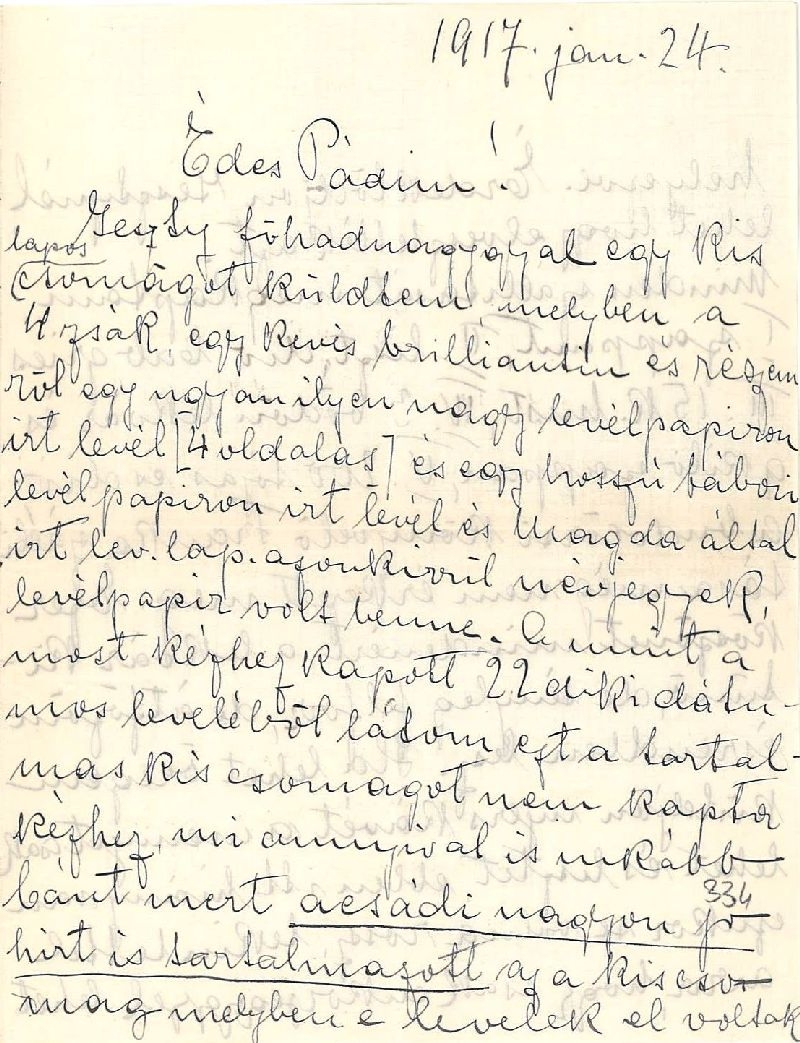 1917. jan. 24.
Édes Pádim!
Jeszty főhadnagygyal egy kis
lapos
csomagot küldtem, melyben a
4 zsák, egy kevés brilliantin és részem
ről egy ugyanilyen nagy levélpapiron
irt levél [4 oldalas] és egy hosszú tábori
levélpapiron irt levél és Magda által
irt lev. lap. azonkivűl névjegyek,
levélpapir volt benne. A mint a
most kézhez kapott 22diki dátu-
mos leveléből látom ezt a tartal-
mas kis csomagot nem kapta
kézhez, mi annyival is inkább
bánt mert acsádi nagyon jó
334
hirt is tartalmazott az a kis cso-
mag melyben e levelek el voltak